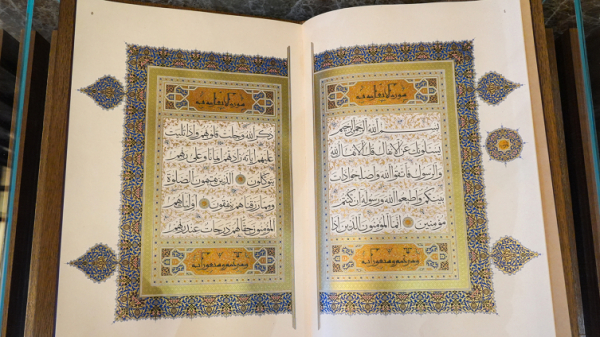 بسم الله الرحمن الرحيم
يسئلونك عن الانفال قل الانفال لله
والرسول فاتقوا الله واصلحوا ذات
بينكم واطيعوا الله ورسوله ان كنتم
مؤمنين انما المؤمنون الذين اذا
ذكر الله وجلت قلوبهم واذا تليت
عليهم اياته زادتهم ايمانا وعلى ربهم
يتوكلون الذين يقيمون الصلوة
ومما رزقناهم ينفقون اولئك هم
المؤمنون حقا لهم درجات عند ربهم